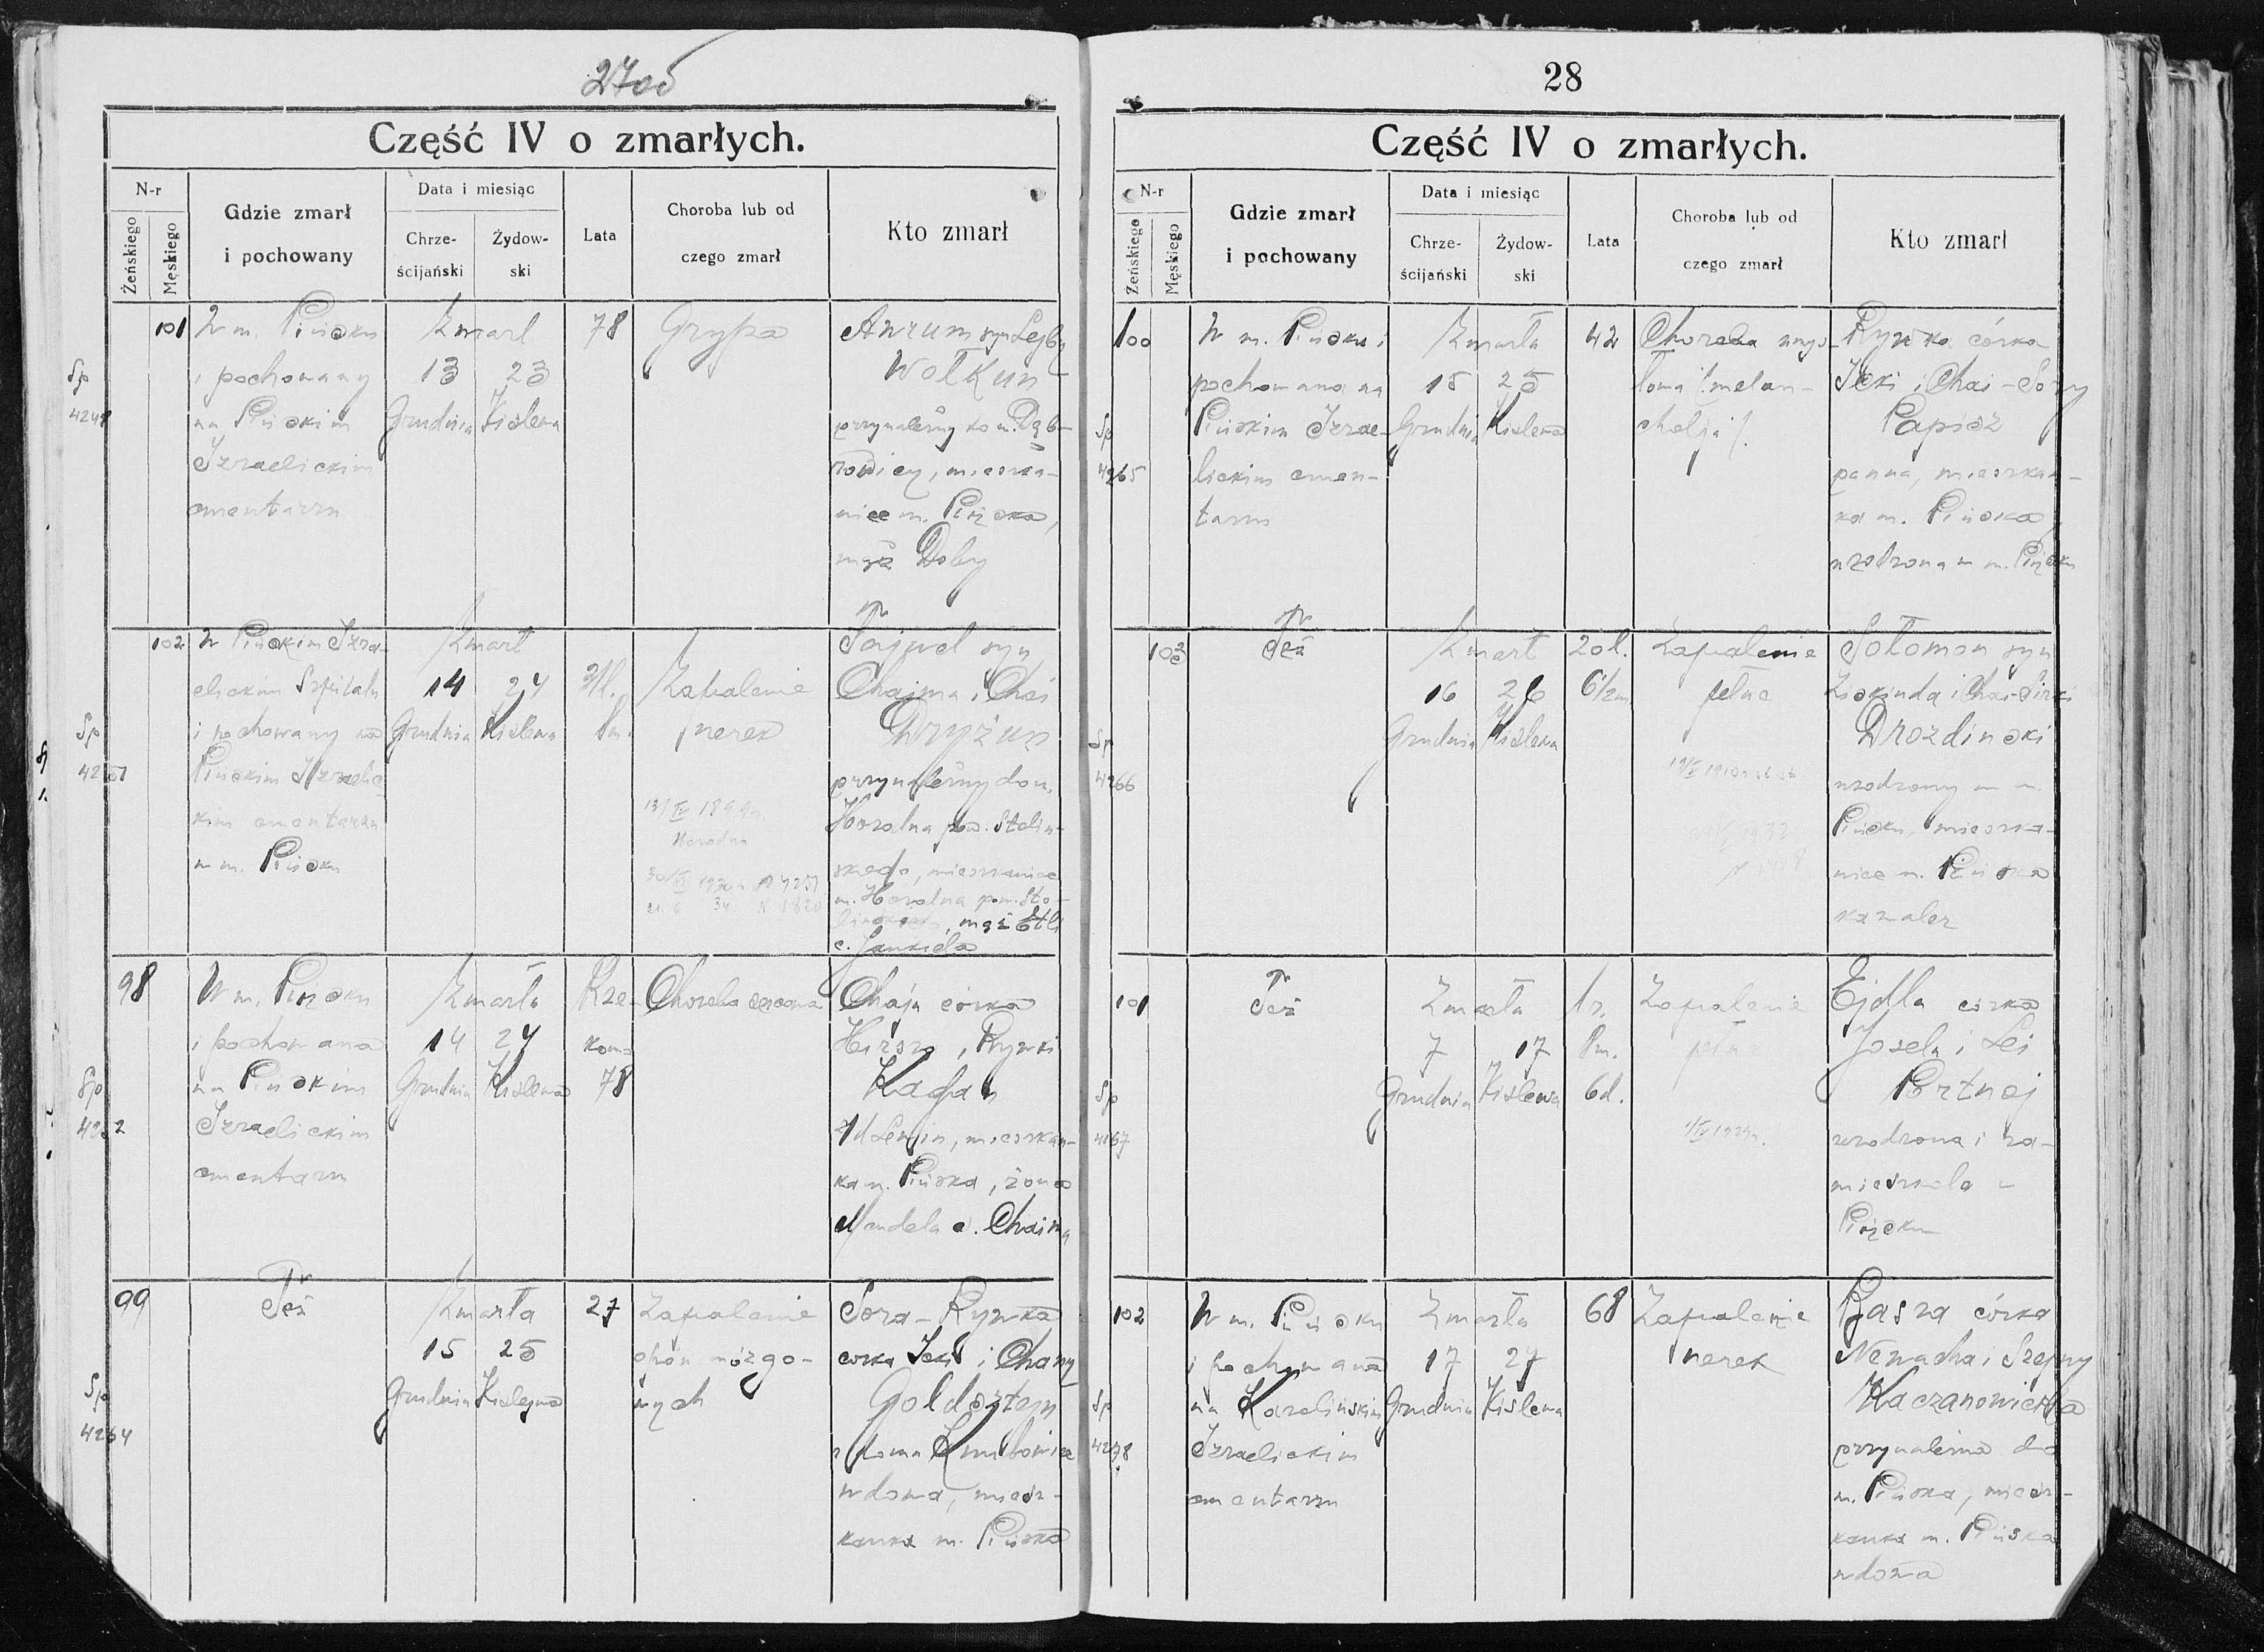 27об
Część IV o zmarłych.
N-r
Żeńskiego
Męskiego
Gdzie zmarł
i pochowany
Data i miesiąc
Chrze-
ścijański
Żydow-
ski
Lata
Choroba lub od
czego zmarł
Kto zmarł
101
W m. Pińsku
i pochowany
na Pińskim
Izraelickim
cmentarzu
Zmarł
13 23
Grudnia Kislewa
78
Grypa
Awrum syn Lejby
Wołkun
przynależny do m. Dąb-
rowicy, mieszka-
niec m. Pińska,
mąż Doby
102
W Pińskim Izra-
elickim Szpitalu
i pochowany na
Pińskim Izraelic
kim cmentarzu
w m. Pińsku
Zmarł
14 24
Grudnia Kislewa
Zapalenie
nerek
Fajwel syn
Chaima i Chai
przynależny do m.
Horodna pow. Stolin-
skiego, mieszkaniec
m. Horodna pow. Sto-
mąż Etli
c. Jankiela
Sp
4251
98
W m. Pińsku
i pochowana
na Pińskim
Izraelickim
cmentarzu
Zmarła
14 24
Grudnia Kislewa
Rze-
komo
78
Choroba sercowa
Chaja córka
Hirsza i Rywki
Kagan
mieszkan-
ka m. Pińska, żona
Mendela c. Chaima
Sp
4252
99
Też
Zmarła
15 25
Grudnia Kislewa
27
Zapalenie
opon mózgo-
wych
Sora-Rywka
córka Icki i Chany
Goldsztejn
z domu
wdowa, miesz-
kanka m. Pińska
Sp
4264
28
Część IV o zmarłych.
N-r
Żeńskiego
Męskiego
Gdzie zmarł
i pochowany
Data i miesiąc
Chrze-
ścijański
Żydow-
ski
Lata
Choroba lub od
czego zmarł
Kto zmarł
100
W m. Pińsku i
pochowana na
Pińskim Izrae-
lickim cmen-
tarzu
Zmarła
15 25
Grudnia Kislewa
42
Choroba umys-
łowa /melan-
cholja/.
Rywka córka
Icki i Chai-Sory
Papisz
panna, mieszkan-
ka m. Pińska,
urodzona w m. Pińsku
Sp
4265
103
Też
Zmarł
16 26
Grudnia Kislewa
20 l.
6 1/2 m
Zapalenie
płuc
Sołomon syn
Ziskinda i Chai-Sirki
Drozdinski
urodzony w m.
Pińsku, mieszka-
niec m. Pińska
kawaler
Sp
4266
101
Też
Zmarła
7 17
Grudnia Kislewa
1 r.
8 m.
6 d.
Zapalenie
płuc
Ejdla córka
Josela i Lei
Portnoj
urodzona i za-
mieszkała w
Pińsku
Sp
102
W m. Pińsku
i pochowana
na Karolińskim
Izraelickim
cmentarzu
Zmarła
17 27
Grudnia Kislewa
68
Zapalenie
nerek
Basza córka
Kaczanowicka
przynależna do
m. Pińska, miesz-
kanka m. Pińska
wdowa
Sp
4278